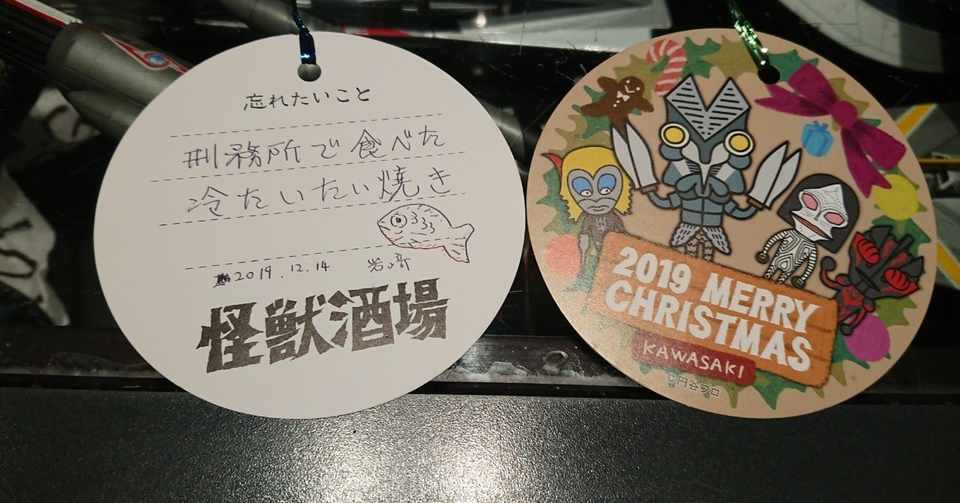 忘れたいこと
刑務所で食べた
冷たいたい焼き
2019.12.14
怪獣酒場
2019 MERRY
CHRISTMAS
KAWASAKI
円谷プロ